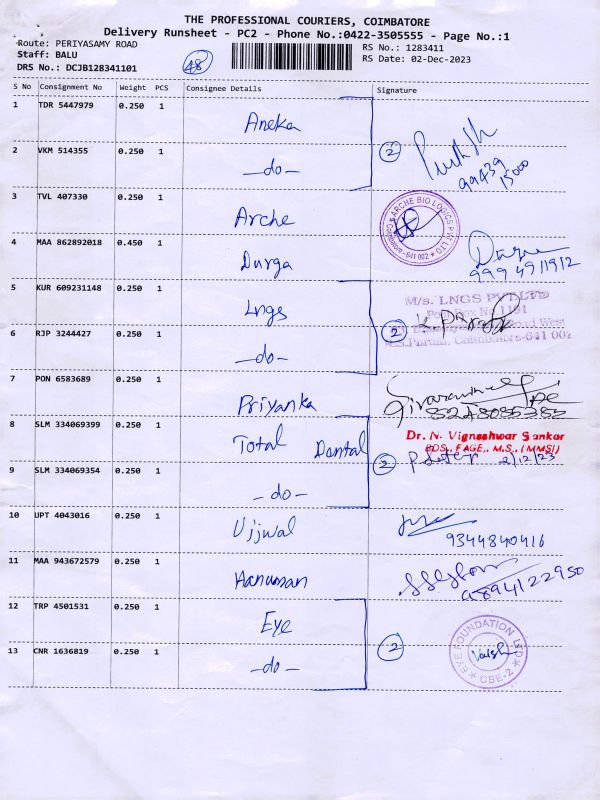 THE PROFESSIONAL COURIERS, COIMBATORE
Delivery Runsheet - PC2 - Phone No.:0422-3505555 - Page No.:1
Route: PERIYASAMY ROAD
Staff: BALU
DRS No.: DCJB128341101
48
RS No.: 1283411
RS Date: 02-Dec-2023
S No Consignment No Weight PCS Consignee Details Signature
1 TDR 5447979 0.250 1 Aneka
2 VKM 514355 0.250 1 -do- 2
99439
15000
3 TVL 407330 0.250 1 Arche
ARCHE BIO LOGICS PVT LTD
Coimbatore - 641 002
4 MAA 862892018 0.450 1 Durga
5 KUR 609231148 0.250 1 Lngs
M/s. LNGS PVT LTD
6 RJP 3244427 0.250 1 -do- 2
Coimbatore-641 002
7 PON 6583689 0.250 1 Priyanka
8 SLM 334069399 0.250 1 Total Dental
Dr. N. Vigneshwar Sankar
BDS., FAGE., M.S., (MMSI)
9 SLM 334069354 0.250 1 -do- 2
2/12/23
10 UPT 4043016 0.250 1 Ujjwal
9344840416
11 MAA 943672579 0.250 1 Hanuman
9894122950
12 TRP 4501531 0.250 1 Eye
13 CNR 1636819 0.250 1 -do- 2
EYE FOUNDATION LTD
CBE-2